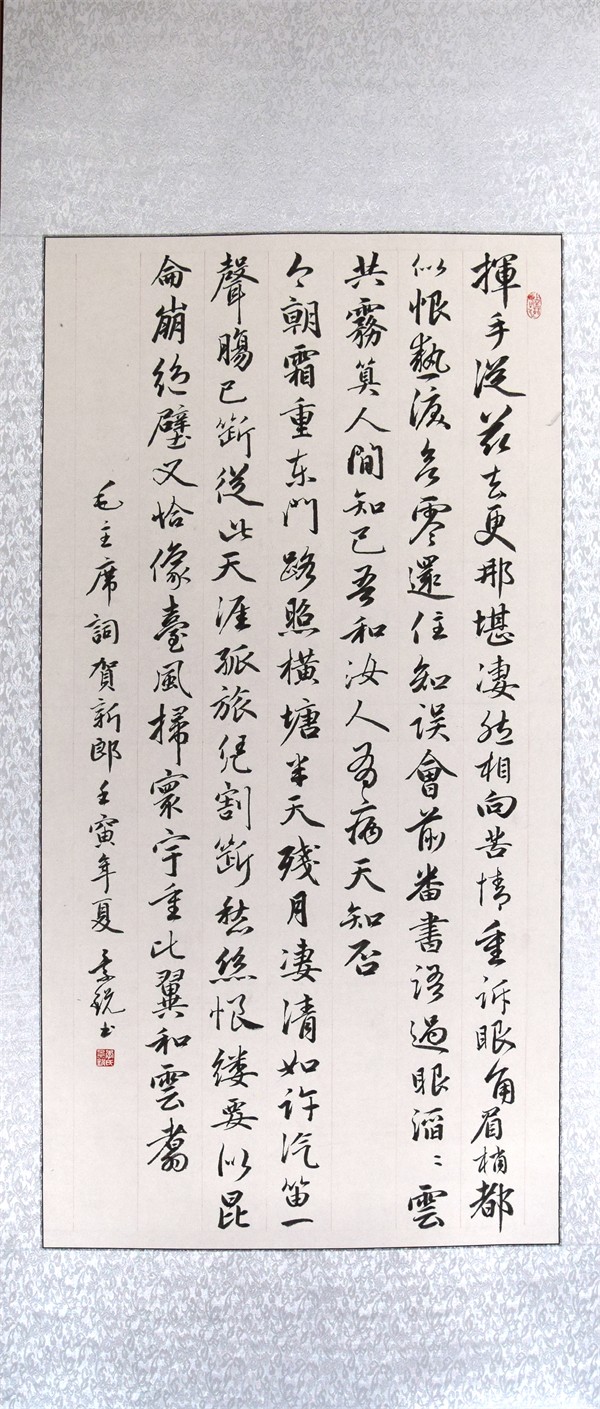 揮手從茲去更那堪凄然相向苦情重訴眼角眉梢都
似恨熱淚欲零還住知誤會前番書語過眼滔〻雲
共霧算人間知己吾和汝人有病天知否
今朝霜重東門路照橫塘半天殘月凄清如許汽笛一
聲腸已斷從此天涯孤旅凭割斷愁絲恨縷要似昆
侖崩絕壁又恰像臺風掃寰宇重比翼和雲翥
毛主席詞賀新郎壬寅年夏 銳书